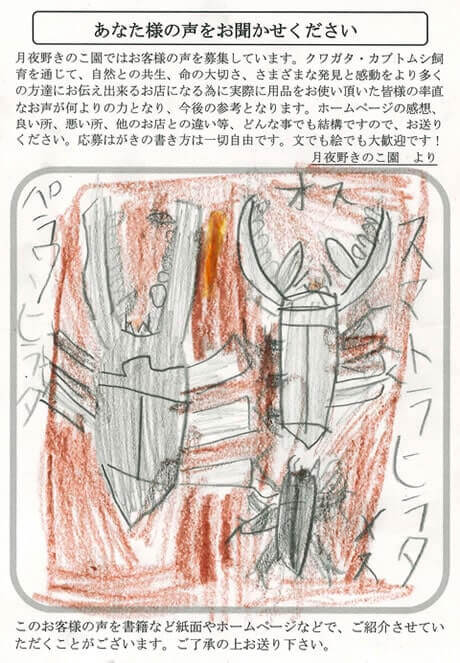 あなた様の声をお聞かせください
月夜野きのこ園ではお客様の声を募集しています。クワガタ・カブトムシ飼
育を通じて、自然との共生、命の大切さ、さまざまな発見と感動をより多く
の方達にお伝え出来るお店になる為に実際に用品をお使い頂いた皆様の率直
なお声が何よりの力となり、今後の参考となります。ホームページの感想、
良い所、悪い所、他のお店との違い等、どんな事でも結構ですので、お送り
ください。応募はがきの書き方は一切自由です。文でも絵でも大歓迎です！
月夜野きのこ園　より
オス
スマトラヒラタ
パラワンヒラタ
メス
このお客様の声を書籍など紙面やホームページなどで、ご紹介させてい
ただくことがございます。ご了承の上お送り下さい。